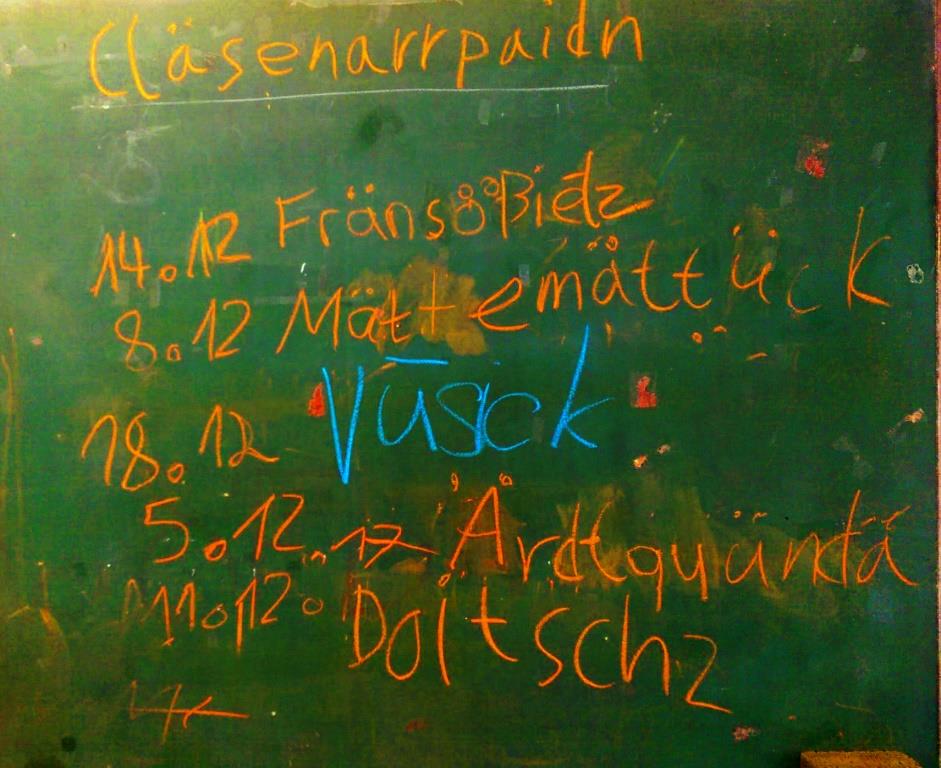 Cläsenarrpaidn
14.12 Fränsößidz
8.12 Mättemättück
18.12 Vūsick
5.12.17 Ärdtquündtä
11.12. Doitschz